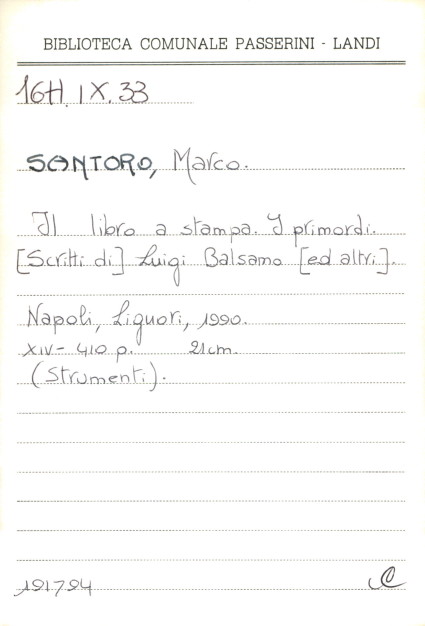 BIBLIOTECA COMUNALE PASSERINI - LANDI
16H.IX.33
SANTORO, Marco.
Il libro a stampa. I primordi.
[Scritti di] Luigi Balsamo [ed altri].
Napoli, Liguori, 1990.
XIV- 410 p. 21cm.
(Strumenti).
191794